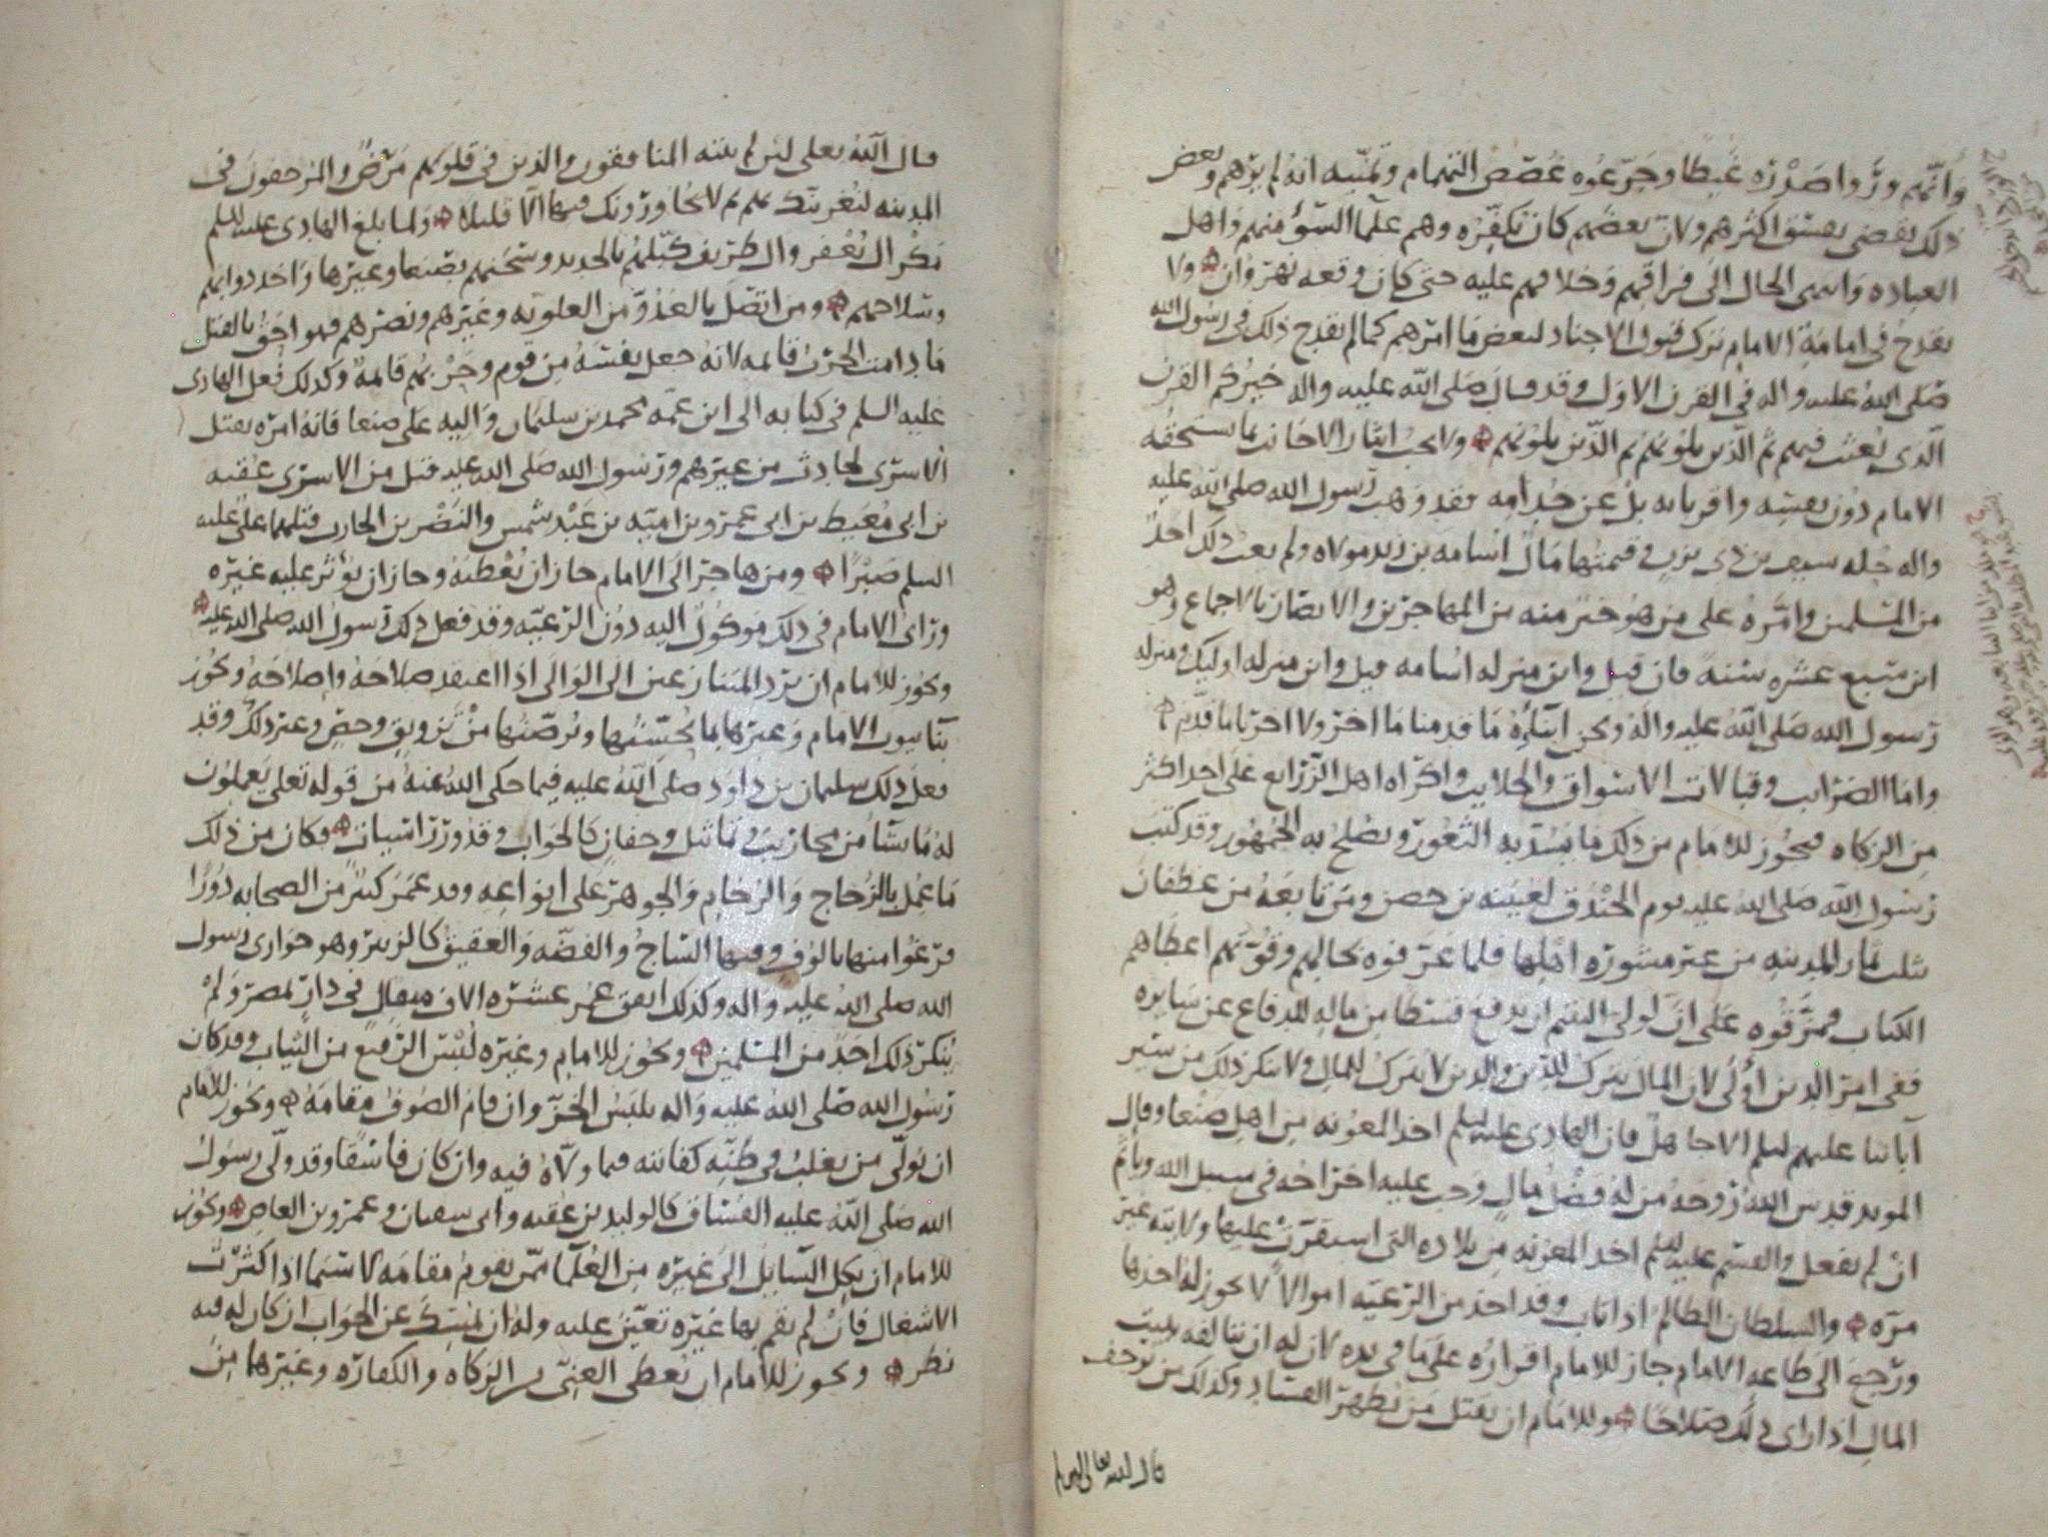 وانهم وروا صدره غيظا وجرعوه غصص التهمام وتمنيه انه لم يرهم وبعض
ذلك يقضي بفسق اكثرهم ولان بعضهم كان يكفره وهم علما السوء منهم واهل
العباده وانتهى الحال الى فراقهم وخلافهم عليه حتى كان وقعه نهروان ولا
يقدح في امامة الامام ترك قبول الاجناد لبعض ما امرهم كما لم يقدح ذلك في رسول الله
صلى الله عليه واله في القرن الاول وقد قال صلى الله عليه واله خيركم القرن
الذي بعثت فيهم ثم الذين يلونهم ثم الذين يلونهم ولا يجب ايثار الاجانب بما يستحقه
الامام دون نفسه واقربائه بل عن خدامه فقد وهب رسول الله صلى الله عليه
واله حله سيف بن ذي يزن وقيمتها مال اسامه بن زيد مولاه ولم يعب ذلك احد
من المسلمين وامره على من هو خير منه من المهاجرين والانصار بالاجماع وهو
ابن سبع عشره سنه فان قيل واين منزله اسامه قيل واين منزله اوليك ومنزله
رسول الله صلى الله عليه واله ونحن ابناؤه ما قدمنا ما اخر ولا اخرنا ما قدم
واما الضرايب وقبالات الاسواق والجلايب واكراه اهل الزرايع على اخذ اكثر
من الزكاه فيجوز للامام من ذلك ما يسد به الثغور ويصلح به الجمهور وقد كتب
رسول الله صلى الله عليه يوم الخندق لعيينه بن حصن ومن تابعه من غطفان
ثلث ثمار المدينه من غير مشوره اهلها فلما عرفوه بحالهم وقوتهم اعطاهم
الكتاب فمزقوه على ان لولي اليتيم ان يدفع قسطا من ماله للدفاع عن سايره
ففي امر الدين اولى لان المال يترك للدين والدين لا يترك للمال ولا ينكر ذلك من سير
آبائنا عليهم السلم الا جاهل فان الهادي عليه السلم اخذ المعونه من اهل صنعا وقال
المويد قدس الله روحه من له فضل مال وجب عليه اخراجه في سبيل الله وياثم
ان لم يفعل والقسم عليه السلم اخذ المعونه من بلاده التي استقرت عليها ولايته غير
مره والسلطان الظالم اذا تاب وقد اخذ من الرعيه اموالا لا يجوز له اخذها
ورجع الى طاعه الامام جاز للامام اقراره على ما في يده لان له ان يتالفه ببيت
المال اذا راى ذلك صلاحا وللامام ان يقتل من يظهر الفساد وكذلك من يرجف
قال الله تعالى لئن لم
قال الله تعلى لئن لم ينته المنافقون والذين في قلوبهم مرض والمرجفون في
المدينه لنغرينك بهم ثم لا يجاورونك فيها الا قليلا ولما بلغ الهادي عليه السلم
مكر ال يعفر وال طريف كبلهم بالحديد وسجنهم بصنعا وغيرها واخذ دوابهم
وسلاحهم ومن اتصل بالعدو من العلويه وغيرهم ونصرهم فهو احق بالقتل
ما دامت الحرب قائمه لانه جعل نفسه من قوم وحربهم قائمة وكذلك فعل الهادي
عليه السلم في كتابه الى ابن عمه محمد بن سليمان واليه على صنعا فانه امره بقتل
الاسرى لحادث من غيرهم ورسول الله صلى الله عليه قتل من الاسرى عقبه
بن ابي معيط بن ابي عمرو بن اميه بن عبد شمس والنضر بن الحارث قتلهما علي عليه
السلم صبرا ومن هاجر الى الامام جاز ان يعطيه وجاز ان يؤثر عليه غيره
وراى الامام في ذلك موكول اليه دون الرعيه وقد فعل ذلك رسول الله صلى الله عليه
ويجوز للامام ان يرد المتنازعين الى الوالي اذا اعتقد صلاحه واصلاحه ويجوز
بنا بيوت الامام وغيرها بما يحسنها ويرصنها من تزويق وجص وغير ذلك وقد
فعل ذلك سليمان بن داود صلى الله عليه فيما حكى الله عنه من قوله تعلى يعملون
له ما يشا من محاريب وتماثيل وجفان كالجواب وقدور راسيات وكان من ذلك
ما عمل بالزجاج والرخام والجوهر على انواعه وقد عمر كثير من الصحابه دورا
فرغوا منها بالوف وفيها الساج والفضه والعقيق كالزبير وهو حواري رسول
الله صلى الله عليه واله وكذلك انفق عمر عشره الاف مثقال في دار بمصر ولم
ينكر ذلك احد من المسلمين ويجوز للامام وغيره لبس الرفيع من الثياب وقد كان
رسول الله صلى الله عليه واله يلبس الخز وان قام الصوف مقامه ويجوز للامام
ان يولي من يغلب في ظنه كفايته فيما ولاه فيه وان كان فاسقا وقد ولى رسول
الله صلى الله عليه الفساق كالوليد بن عقبه وابي سفيان وعمرو بن العاص ويجوز
للامام ان يكل السايل الى غيره من العلما ممن يقوم مقامه لا سيما اذا كثرت
الاشغال فان لم يقم بها غيره تعين عليه وله ان يمسك عن الجواب ان كان له فيه
نظر ويجوز للامام ان يعطى الغني من الزكاه والكفاره وغيرها من